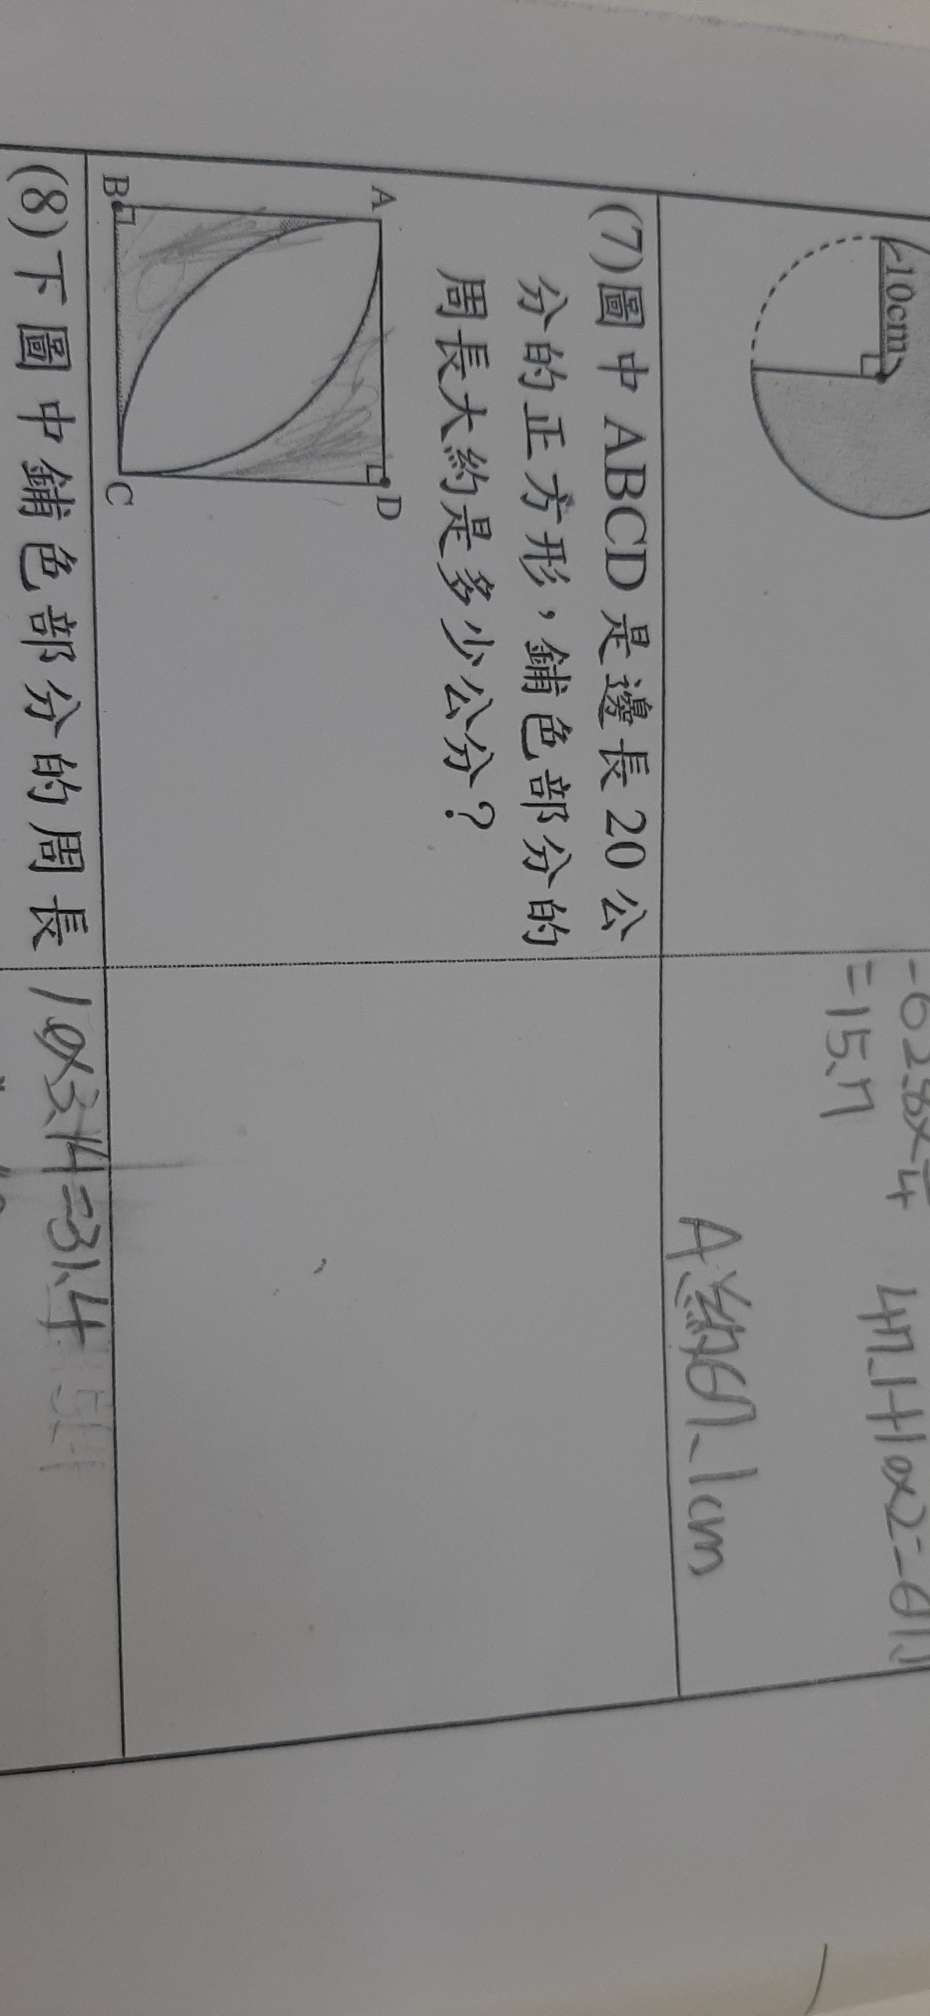 10cm
-62.8×
4
=15.7
47.1+10×2=67.1
A:約67.1cm
(7)圖中ABCD是邊長20公
分的正方形，鋪色部分的
周長大約是多少公分？
A
D
B
C
(8)下圖中鋪色部分的周長
10×3.14=31.4